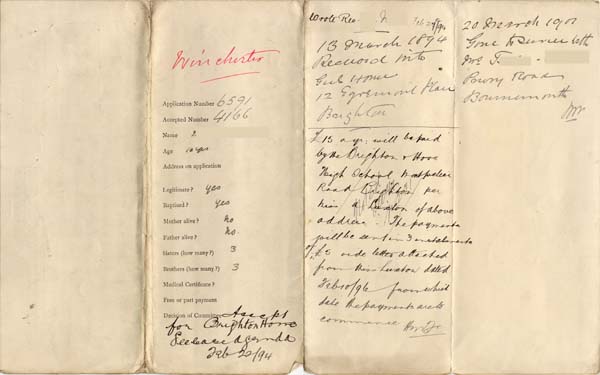 Winchester
Application Number 6591
Accepted Number 4166
Name
Age 10 yrs
Address on application
Legitimate? yes
Baptised? yes
Mother alive? no
Father alive? no
Sisters (how many?) 3
Brothers (how many?) 3
Medical Certificate?
Free or part payment
Decision of Committee Accept
for Brighton Home
See Case agenda
Feb 22/94
Wrote Rev. Feb 24/94
13 March 1894
Received into
Girls Home
12 Egremont Place
Brighton
£15 a yr. will be paid
by the Brighton & Hove
High School Montpelier
Road Brighton per
Miss Luxton of above
address. The payments
will be sent in 3 instalments
of £5 vide letter attached
from Miss Luxton dated
Feb 10/96 from which
date the payments are to
commence
20 March 1901
Gone to Service with
Mrs
Road
Bournemouth